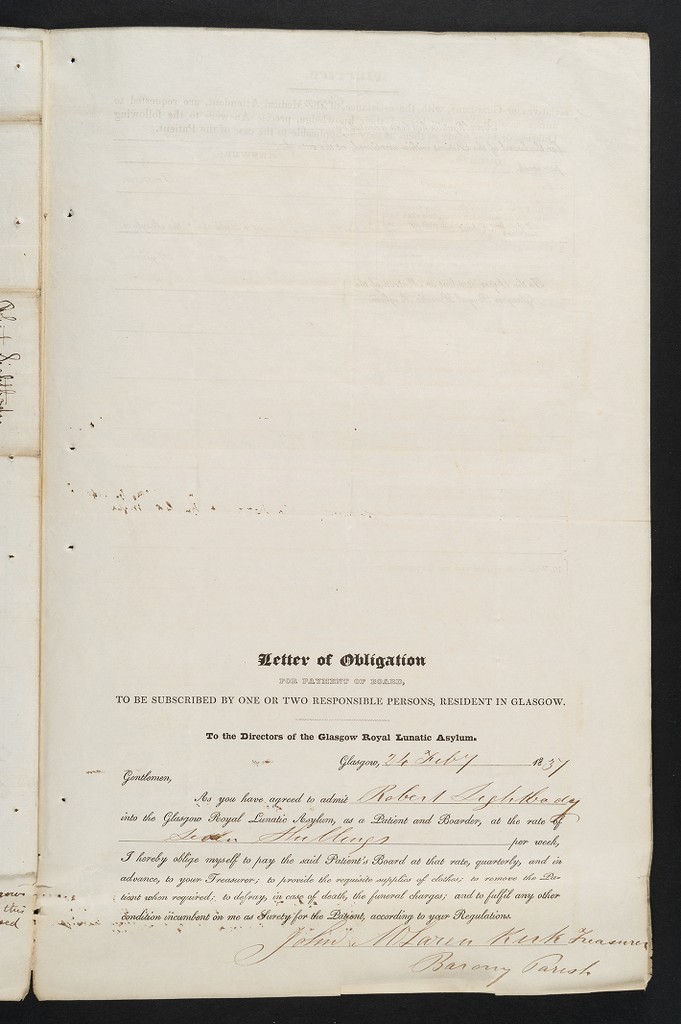 Letter of Obligation
FOR PAYMENT OF BOARD,
TO BE SUBSCRIBED BY ONE OR TWO RESPONSIBLE PERSONS, RESIDENT IN GLASGOW.
To the Directors of the Glasgow Royal Lunatic Asylum.
Glasgow, 24 Feby 1837
Gentlemen,
As you have agreed to admit Robert Lightbody
into the Glasgow Royal Lunatic Asylum, as a Patient and Boarder, at the rate of
Seven Shillings per week,
I hereby oblige myself to pay the said Patient's Board at that rate, quarterly, and in
advance, to your Treasurer; to provide the requisite supplies of clothes; to remove the Pa-
tient when required; to defray, in case of death, the funeral charges; and to fulfil any other
condition incumbent on me as Surety for the Patient, according to your Regulations.
John McLaren Kirk Treasurer
Barony Parish